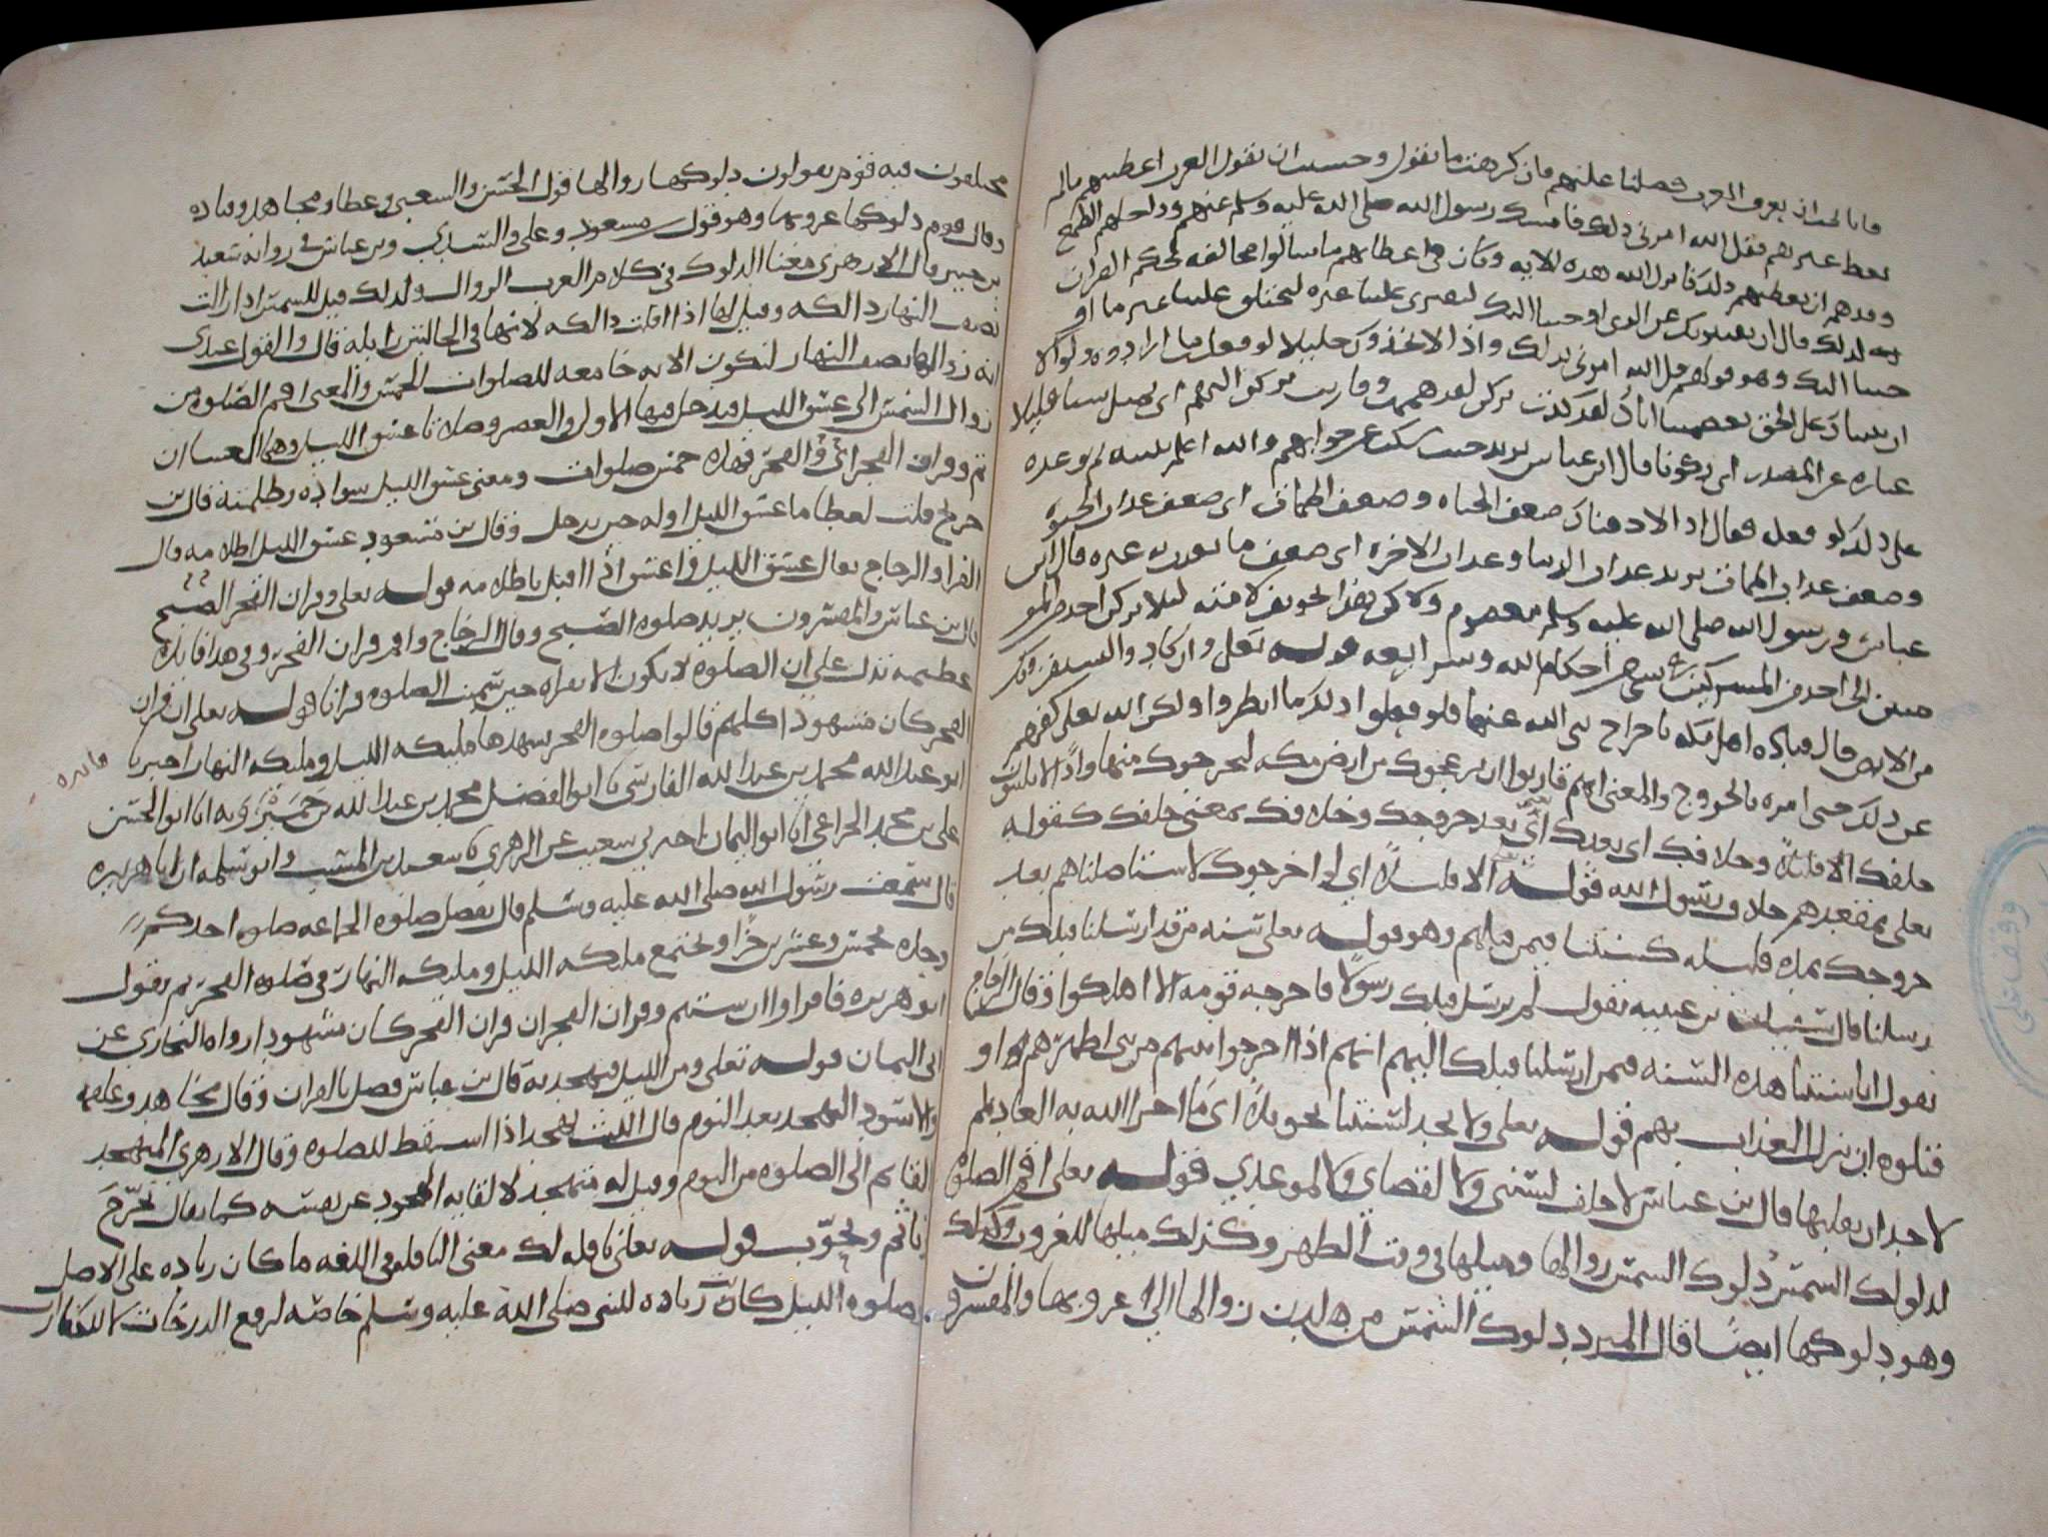 فانا نحب ان تعرف العرب فضلنا عليهم فان كرهت ما نقول وحسبت ان تقول العرب اعطيتهم ما لم
تعط غيرهم فقل الله امرني بذلك فامسك رسول الله صلى الله عليه وسلم عنهم وداخلهم الطمع
وقد هم ان يعطيهم ذلك فانزل الله هذه الايه وكان في اعطائهم ما سالوا مخالفه لحكم القران
لذلك قال ان يفتنونك عن الذي اوحينا اليك لتفتري علينا غيره لتختلق علينا غير ما او
حينا اليك وهو قولهم قل الله امرني بذلك واذا لاتخذوك خليلا لو فعلت ما ارادوه ولولا
ان ثبتناك على الحق بعصمتنا اياك لقد كدت تركن لقد هممت وقاربت تركن اليهم اي تميل شيئا قليلا
عباره عن المصدر اي ركونا قال ابن عباس يريد حيث سكت عن جوابهم والله اعلم بنيته ثم توعده
على ذلك لو فعله فقال اذا لاذقناك ضعف الحياه وضعف الممات اي ضعف عذاب الحيوه
وضعف عذاب الممات يريد عذاب الدنيا وعذاب الاخره اي ضعف ما يعذب به غيره قال ابن
عباس ورسول الله صلى الله عليه وسلم معصوم ولاكن هذا تخويف لامته ليلا يركن احد من المو
منين الى احد من المشركين في شي من احكام الله وشرايعه قوله تعلى وان كادوا ليستفزونك
من الارض قال قتاده اهل مكه باخراج نبي الله عنها ولو فعلوا ذلك ما انظروا ولكن الله تعلى كفهم
عن ذلك حتى امره بالخروج والمعنى انهم قاربوا ان يزعجوك من ارض مكه ليخرجوك منها واذا لا يلبثون
خلفك الا قليلا وخلافك اي بعدك اي بعد خروجك وخلافك بمعنى خلفك كقوله
تعلى بمقعدهم خلاف رسول الله قوله الا قليلا اي لو اخرجوك لاستاصلناهم بعد
خروجك بمده قليله كسنتنا فيمن قبلهم وهو قوله تعلى سنه من قد ارسلنا قبلك من
رسلنا قال سفيان بن عيينه يقول لم يرسل قبلك رسولا فاخرجه قومه الا اهلكوا وقال الزجاج
يقول انا سننا هذه السنه فيمن ارسلنا قبلك اليهم انهم اذا اخرجوا نبيهم من بين اظهرهم او
قتلوه ان ينزل العذاب بهم قوله تعلى ولا تجد لسنتنا تحويلا اي ما اجرا الله به العاده لم
لاحد ان يقلبها قال بن عباس لا خلف لسنتي ولا لقضاي ولا لموعدي قوله تعلى اقم الصلوه
لدلوك الشمس دلوك الشمس زوالها وميلها في وقت الظهر وكذلك ميلها للغروب وكذلك
وهو دلوكها ايضا قال المبرد دلوك الشمس من لدن زوالها الى غروبها والمفسرون
مختلفون فيه فقوم يقولون دلوكها زوالها قول الحسن والشعبي وعطا ومجاهد وقتاده
وقال قوم دلوكها غروبها وهو قول بن مسعود وعلي والسدي وبن عباس في روايه سعيد
بن جبير قال الازهري معنا الدلوك في كلام العرب الزوال ولذلك قيل للشمس اذا زالت
نصف النهار دالكه وقيل لها اذا افلت دالكه لانها في الحالتين زايله قال والقول عندي
انه زوالها نصف النهار لتكون الايه جامعه للصلوات الخمس والمعنى اقم الصلوه من
زوال الشمس الى غسق الليل فيدخل فيها الاولى والعصر وصلاتا غسق الليل وهما العشاان
ثم وقران الفجر اي والفجر فهذه خمس صلوات ومعنى غسق الليل سواده وظلمته قال بن
جريج قلت لعطا ما غسق الليل اوله حين يدخل وقال بن مسعود غسق الليل اظلامه قال
الفرا والزجاج يقال غسق الليل واغسق اذا اقبل باظلامه قوله تعلى وقران الفجر الصبح
قال بن عباس والمفسرون يريد صلوه الصبح وقال الزجاج واقم قران الفجر وفي هذا فايده
عظيمه تدل على ان الصلوه لا تكون الا بقراه حين سميت الصلوه قرانا قوله تعلى ان قران
الفجر كان مشهودا كلهم قالوا صلوه الفجر يشهدها مليكه الليل ومليكه النهار اخبرنا
فايده
ابو عبد الله محمد بن عبد الله الفارسي نا ابو الفضل محمد بن عبد الله بن خميرويه انا ابو الحسن
علي بن محمد الخزاعي انا ابو اليمان اخبرني شعيب عن الزهري نا سعيد بن المسيب وابو سلمه ان ابا هريره
قال سمعت رسول الله صلى الله عليه وسلم قال تفضل صلوه الجماعه صلوه احدكم
وحده بخمس وعشرين جزا وتجتمع مليكه الليل ومليكه النهار في صلوه الفجر ثم يقول
ابو هريره فاقراوا ان شيتم وقران الفجر ان قران الفجر كان مشهودا رواه البخاري عن
ابي اليمان قوله تعلى ومن الليل فتهجد به قال بن عباس فصل بالقران وقال مجاهد وعلقمه
والاسود التهجد بعد النوم قال الليث تهجد اذا استيقظ للصلوه وقال الازهري المتهجد
القايم الى الصلوه من النوم وقيل له متهجد لالقايه الهجود عن نفسه كما يقال تحرج
تاثم وتحوب قوله تعلى نافله لك معنى النافله في اللغه ما كان زياده على الاصل
صلوه الليل كانت زياده للنبي صلى الله عليه وسلم خاصه لرفع الدرجات لا للكفارات
وقف على